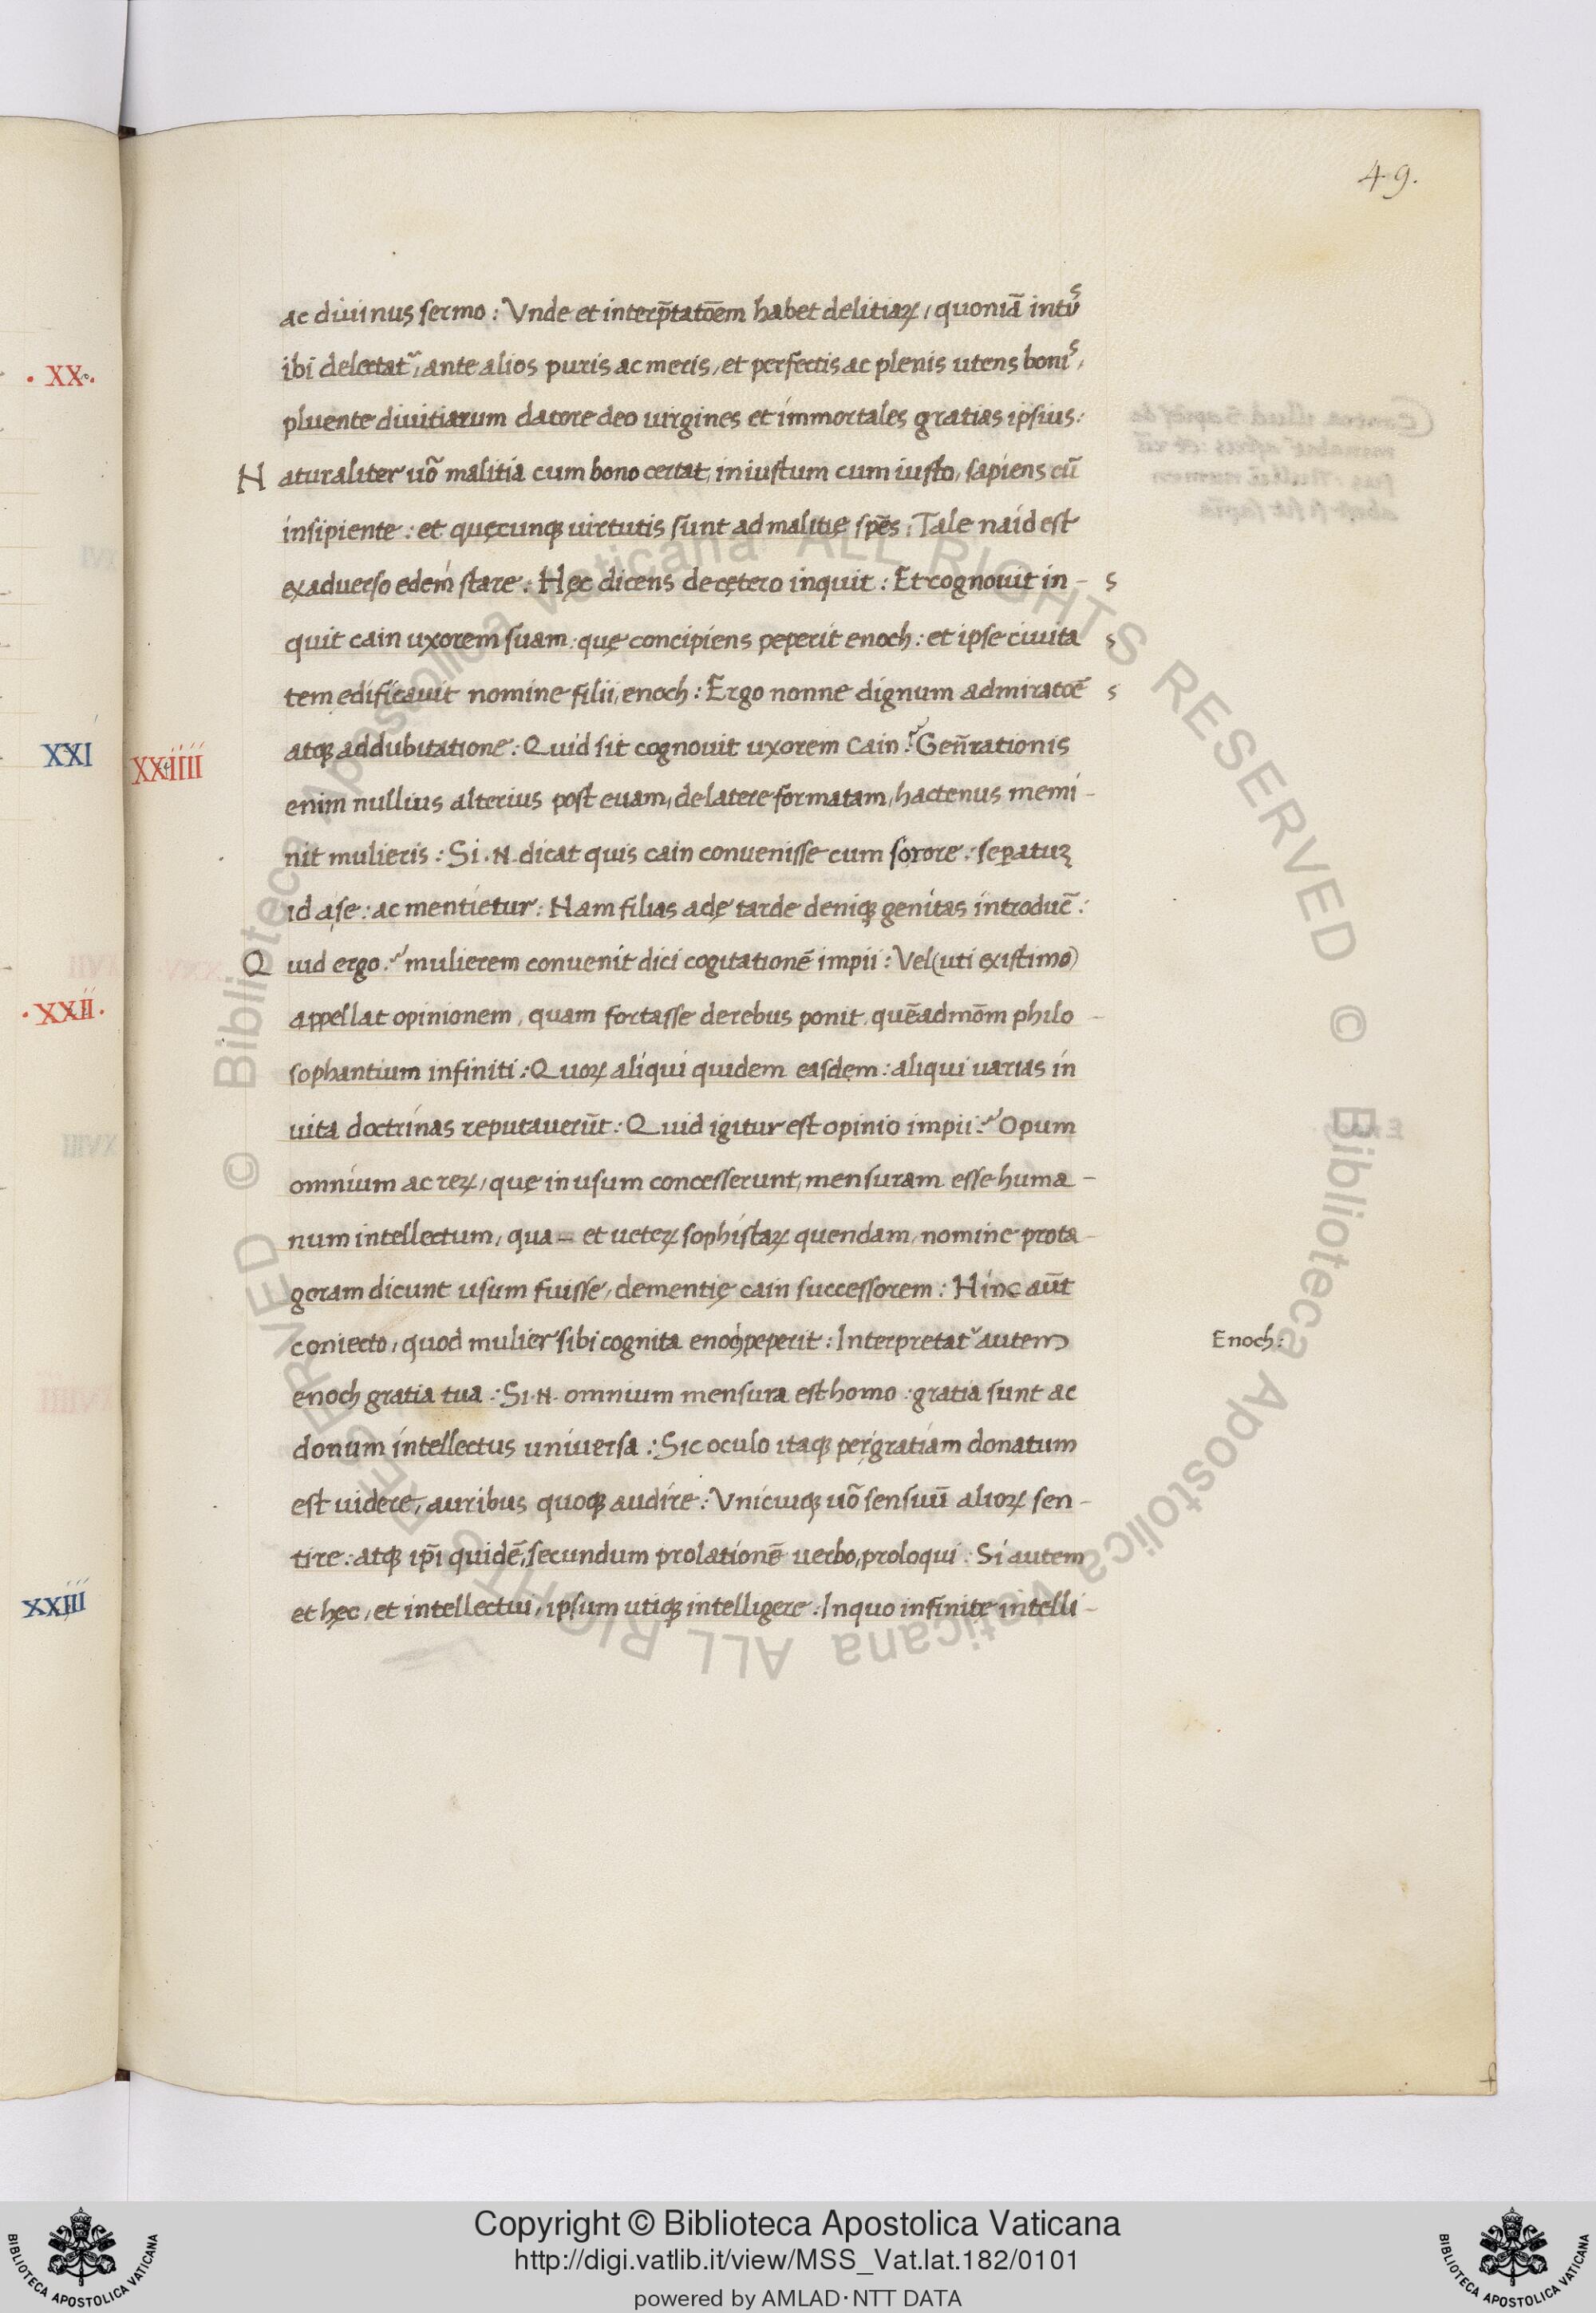 49.
ac diuinus sermo : Vnde et interp̄tatōem habet delitiaꝝ, quoniā intꝰ
ibi delectat᷑, ante alios puris ac meris, et perfectis ac plenis utens bonis,
pluente diuitiarum datore deo uirgines et immortales gratias ipsius :
Naturaliter uō malitia cum bono certat, iniustum cum iusto, sapiens cū
insipiente : et quęcunqꝫ uirtutis sunt ad malitię spēs : Tale naid est
ex aduerso edem stare : Hęc dicens de cętero inquit : Et cognouit in-
quit cain uxorem suam : quę concipiens peperit enoch : et ipse ciuita
tem ędificauit nomine filii, enoch : Ergo nonne dignum admiratōe
XXIIII
atqꝫ addubitatione : Quid sit cognouit uxorem Cain ? Geñrationis
enim nullius alterius post euam, de latere formatam, hactenus memi-
nit mulieris : Si .N. dicat quis cain conuenisse cum sorore : seꝑatuꝝ
id a se : ac mentietur : Nam filias adę tarde deniqꝫ genitas introduc̄ :
Quid ergo ? mulierem conuenit dici cogitationē impii : Vel (uti existimo)
appellat opinionem, quam fortasse de rebus ponit, quēadmōm philo-
sophantium infiniti : Quoꝝ aliqui quidem easdem : aliqui uarias in
uita doctrinas reputauerūt : Quid igitur est opinio impii ? Opum
omnium ac reꝝ, quę in usum concesserunt, mensuram esse huma-
num intellectum, qua = et ueteꝝ sophistaꝝ quendam, nomine prota-
goram dicunt usum fuisse, dementię cain successorem : Hinc aūt
coniecto, quod mulier sibi cognita enoch peperit : Interpretat᷑ autem
Enoch :
enoch gratia tua : Si .N. omnium mensura est homo : gratia sunt ac
donum intellectus uniuersa : Sic oculo itaqꝫ per gratiam donatum
est uidere, auribus quoqꝫ audire : Vnicuiqꝫ uō sensuū alioꝝ sen-
tire : atqꝫ ip̄i quidē, secundum prolationē uerbo, proloqui : Si autem
et hęc, et intellectui, ipsum utiqꝫ intelligere : In quo infinite intelli-
XX
XXI
XXII
XXIII
© Biblioteca Apostolica Vaticana ALL RIGHTS RESERVED
© Biblioteca Apostolica Vaticana ALL RIGHTS RESERVED
Copyright © Biblioteca Apostolica Vaticana
http://digi.vatlib.it/view/MSS_Vat.lat.182/0101
powered by AMLAD·NTT DATA
BIBLIOTECA APOSTOLICA VATICANA
BIBLIOTECA APOSTOLICA VATICANA